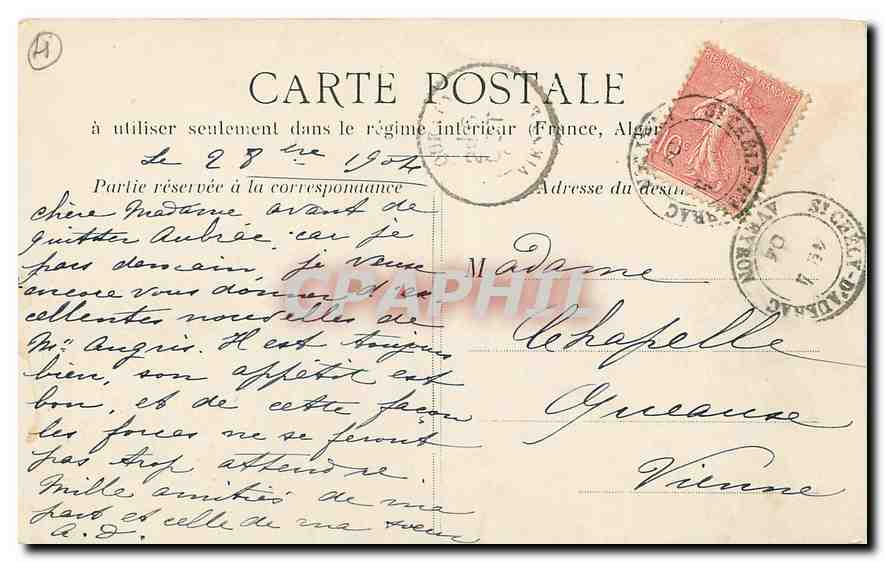 H
CARTE POSTALE
à utiliser seulement dans le régime intérieur (France, Algér
Le 28 bre 1904
Partie réservée à la correspondance
Adresse du destin
chère Madame avant de
quitter Aubrac, car je
pars demain, je veux
encore vous donner d'ex
cellentes nouvelles de
Mr Augris. Il est toujours
bien, son appétit est
bon, et de cette façon
les forces ne se feront
pas trop attendre
Mille amitiés de ma
part et celle de ma soeur
A. D.
Madame
Chapelle
Queaux
Vienne
10c
ST CHELY-D'AUBRAC
AVEYRON
04
CPAPHIL